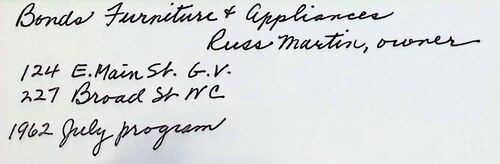 Bonds Furniture & Appliances
Russ Martin, owner
124 E. Main St. G.V.
227 Broad St NC
1962 July program